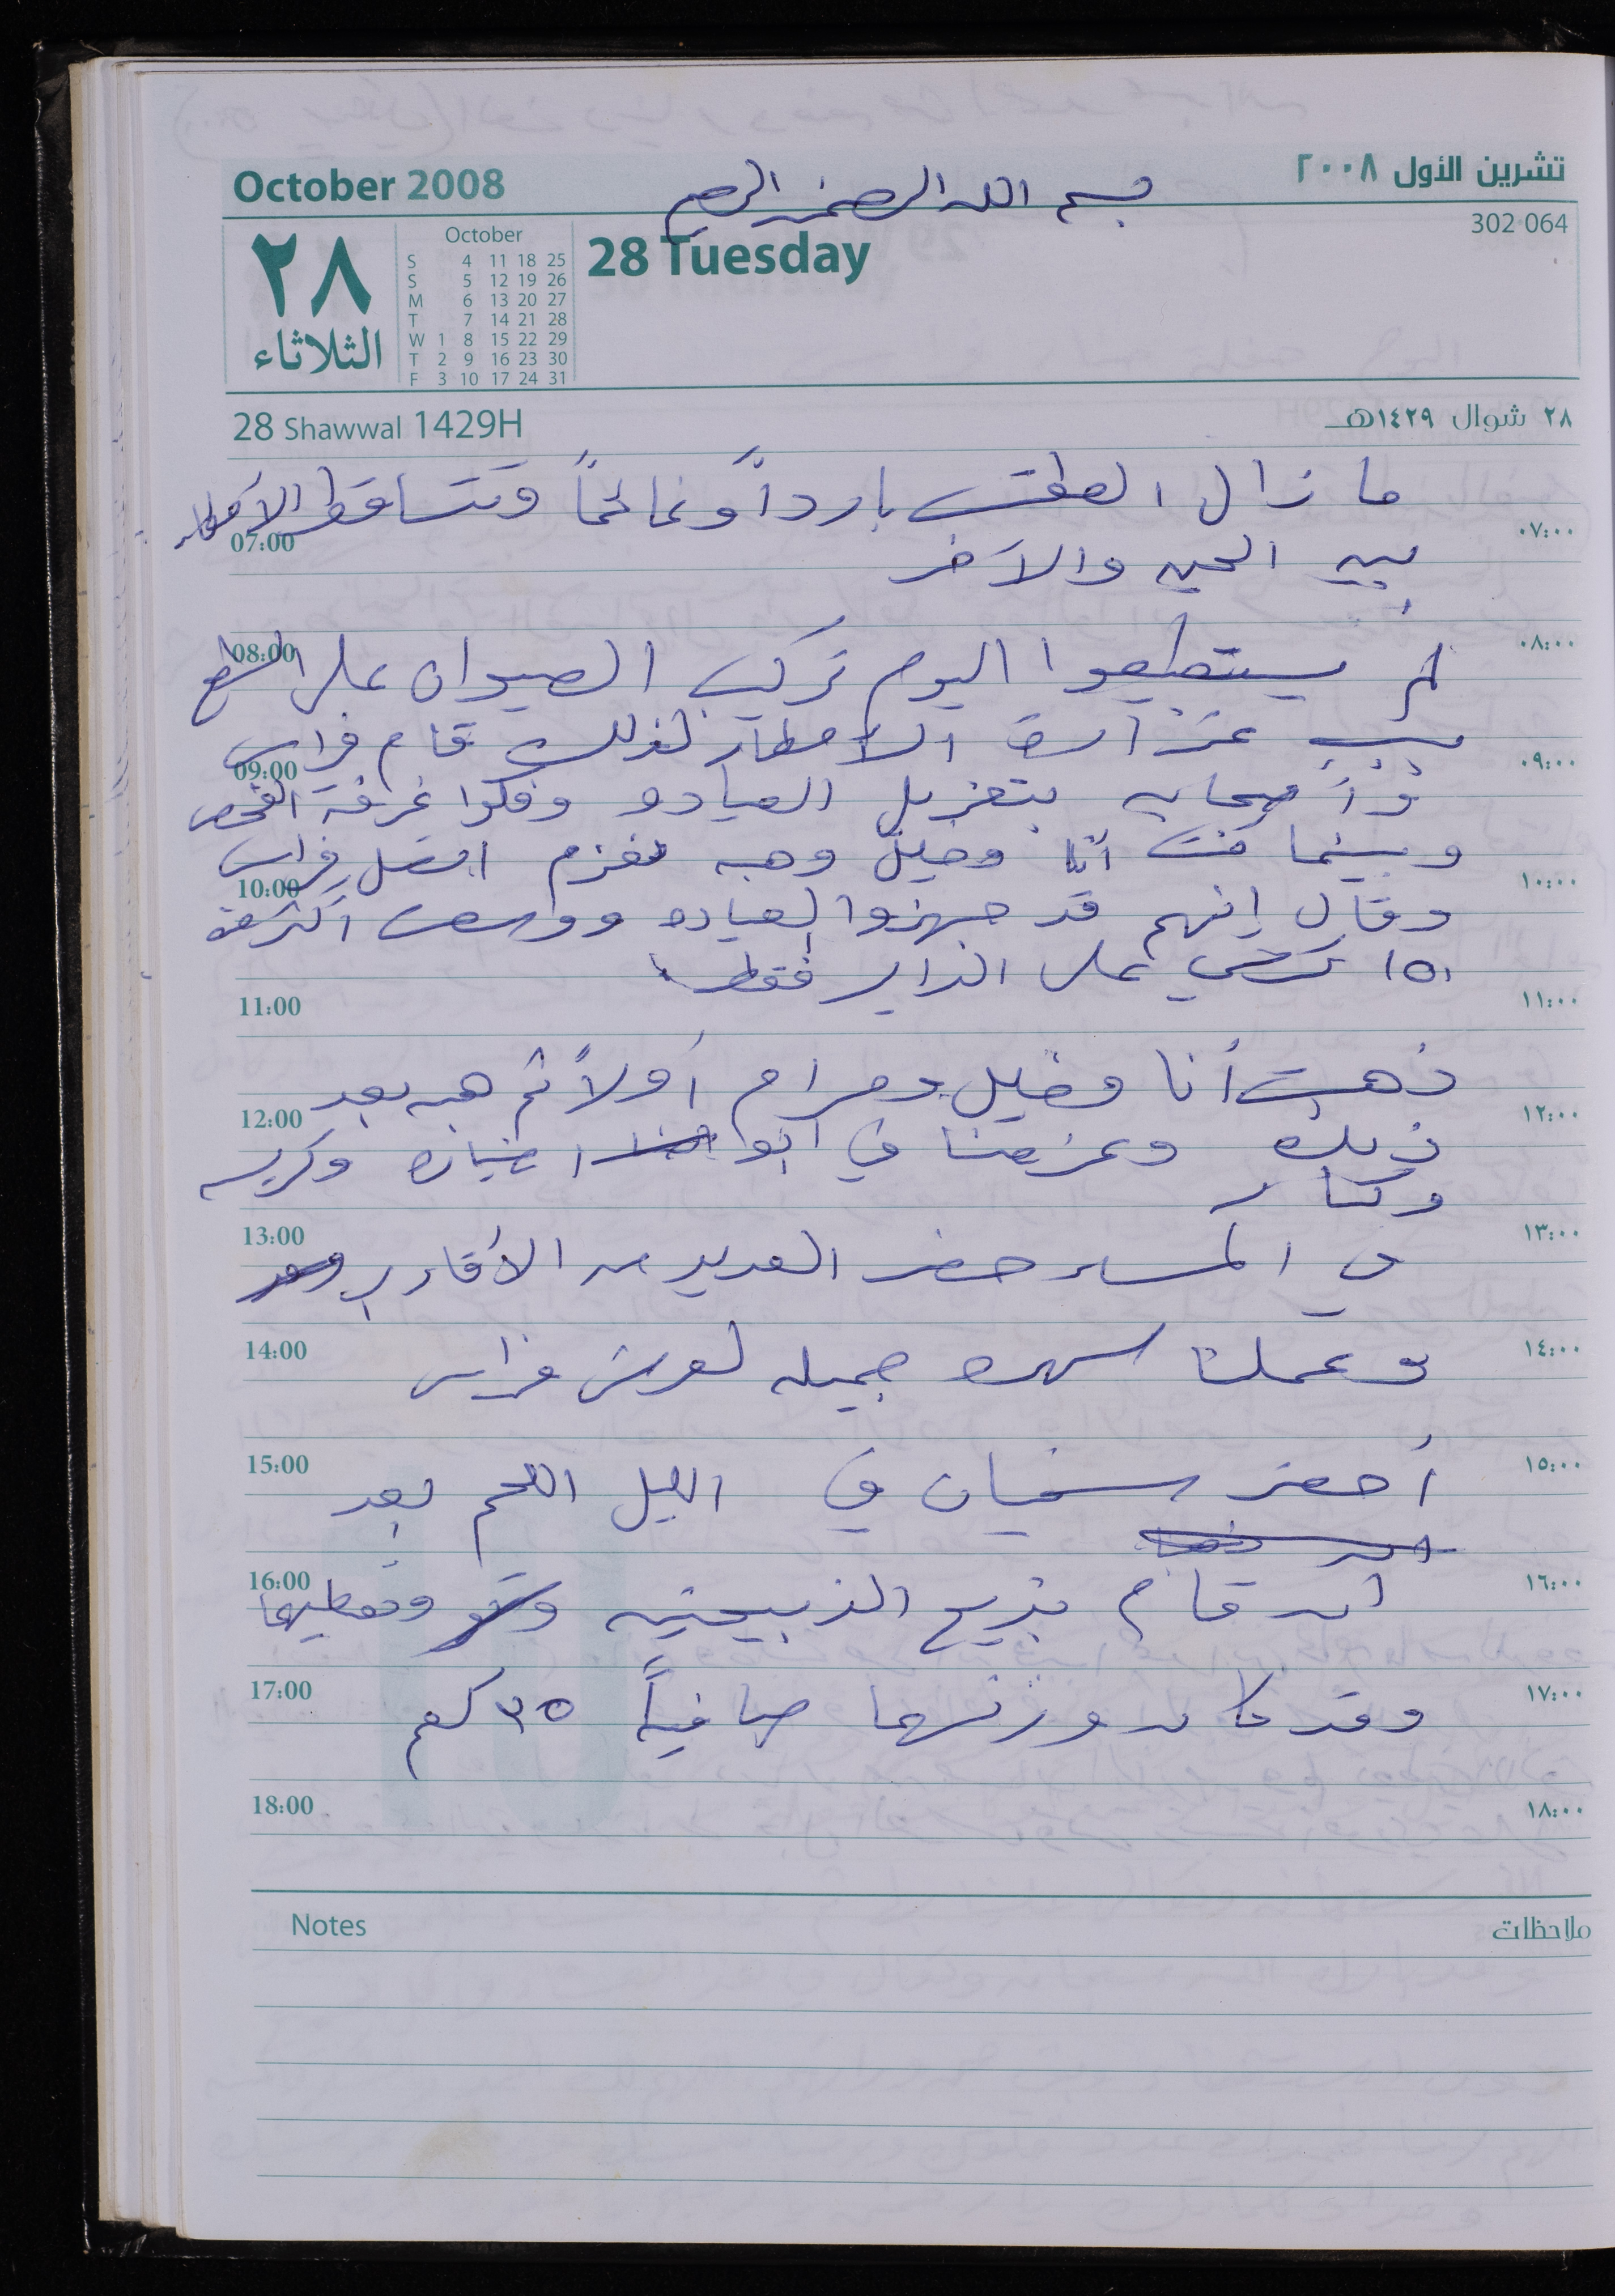 October 2008
بسم الله الرحمن الرحيم
تشرين الأول ٢٠٠٨
302 064
٢٨
الثلاثاء
October
S 4 11 18 25
S 5 12 19 26
M 6 13 20 27
T 7 14 21 28
W 1 8 15 22 29
T 2 9 16 23 30
F 3 10 17 24 31
28 Tuesday
28 Shawwal 1429H
٢٨ شوال ١٤٢٩هـ
ما زال الطقس بارداً وغائماً وتتساقط الأمطار
07:00 ٠٧:٠٠
بين الحين والآخر
08:00 ٠٨:٠٠
لم يستطيعوا اليوم تركيب الصيوان على السطح
بسبب غزارة الامطار لذلك قام فراس
09:00 ٠٩:٠٠
وأصحابه بتعزيل العياده وفكوا غرفة الفحص
وبينما كنت أنا وهبه نعزم اتصل فراس
10:00 ١٠:٠٠
وقال إنهم قد جهزوا العياده ووسعت أكثر من
١٥٠ كرسي على الداير فقط
11:00 ١١:٠٠
ذهبت أنا ومرام أولاً ثم هبه بعد
12:00 ١٢:٠٠
ذلك وعزمنا في ابو وكريمه
13:00 ١٣:٠٠
في المساء حضر العديد من الأقارب
14:00 ١٤:٠٠
وعملنا سهره جميله لعرس فراس
15:00 ١٥:٠٠
أحضر سفيان في الليل اللحم بعد
16:00 ١٦:٠٠
ان قام بذبح الذبيحتين وتقطيعها
17:00 ١٧:٠٠
وقد كان وزنهما صافياً ٣٥ كغم
18:00 ١٨:٠٠
Notes ملاحظات